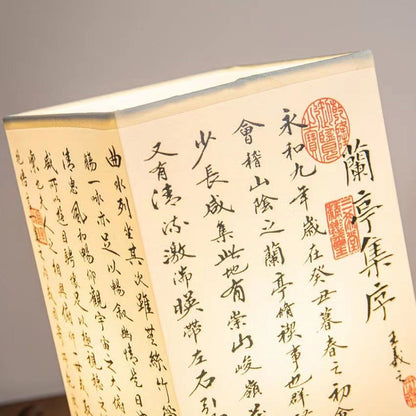 蘭亭集序
王羲之
永和九年歲在癸丑暮春之初
會稽山陰之蘭亭脩禊事也群
少長咸集此地有崇山峻嶺
又有清流激湍暎帶左右引
曲水列坐其次雖無絲竹
觴一詠亦足以暢叙幽情是日
清惠風和暢仰觀宇宙之大
盛所以遊目騁懷足以極視